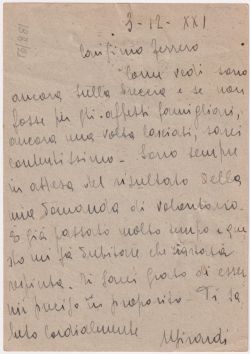 3-12-XXI
Carissimo Ferrero
Come vedi sono
ancora sulla breccia e se non
fosse per gli affetti famigliari,
ancora una volta lasciati, sarei
contentissimo. Sono sempre
in attesa del risultato della
mia domanda di volontario.
E già passato molto tempo e que
sto mi fa dubitare che sia stata
respinta. Ti sarei grato di esser
mi preciso in proposito. Ti sa
luto cordialmente